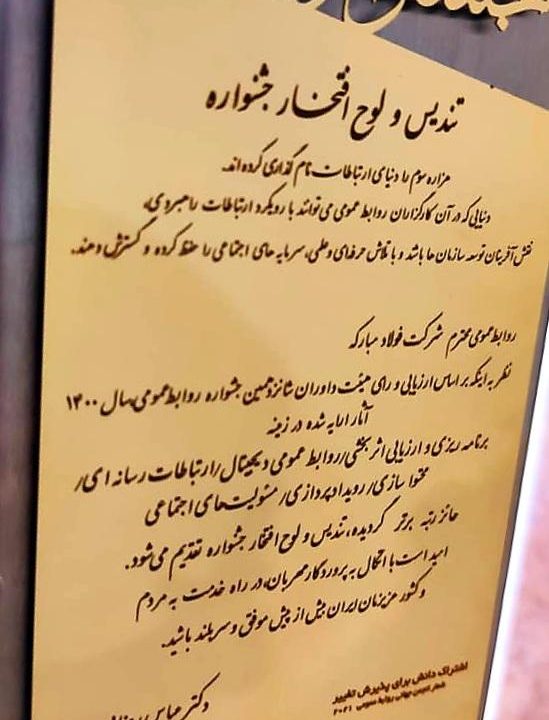 تندیس و لوح افتخار جشنواره
هزاره سوم را دنیای ارتباطات نام گذاری کرده‌اند.
دنیایی که در آن کارگزاران روابط عمومی می‌توانند با رویکرد ارتباطات راهبردی،
نقش آفرینان توسعه سازمان ها باشد و با تلاش حرفه‌ای و علمی، سرمایه های اجتماعی را حفظ کرده و گسترش دهند.
روابط عمومی محترم شرکت فولاد مبارکه
نظر به اینکه بر اساس ارزیابی و رای هیئت داوران شانزدهمین جشنواره روابط عمومی سال ۱۴۰۰
آثار ارایه شده در زمینه
برنامه ریزی و ارزیابی اثربخشی/روابط عمومی دیجیتال/ارتباطات رسانه ای/
محتوا سازی/رویداد پردازی/مسئولیت‌های اجتماعی
حائز رتبه برتر گردیده، تندیس و لوح افتخار جشنواره تقدیم می‌شود.
امید است با اتکال به پروردگار مهربان، در راه خدمت به مردم
و کشور عزیزمان ایران بیش از پیش موفق و سربلند باشید.
اشتراک دانش برای پذیرش تغییر
شعار انجمن جهانی روابط عمومی ۲۰۲۱
دکتر عباس